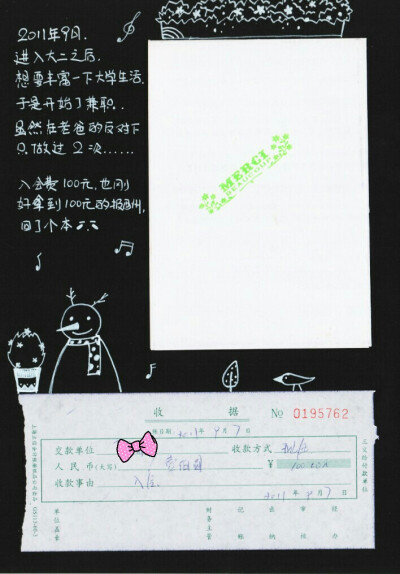 2011年9月.
进入大二之后.
想要丰富一下大学生活.
于是开始了兼职..
虽然在老爸的反对下
只做过 2次......
入会费100元.也刚
好拿到100元的报酬州.
回了个本
MERCI
BEAUCOUP
收 据
№ 0195762
2011年 9月 7日
交款单位
收款方式 现金
人民币(大写) 壹佰圆
¥ 100.00
收款事由 入会
2011 年 9 月 7 日
单位盖章
财务主管
记账
出纳
审核
经办